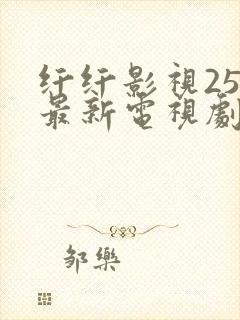 纤纤影視25
最新電視劇
邹樂